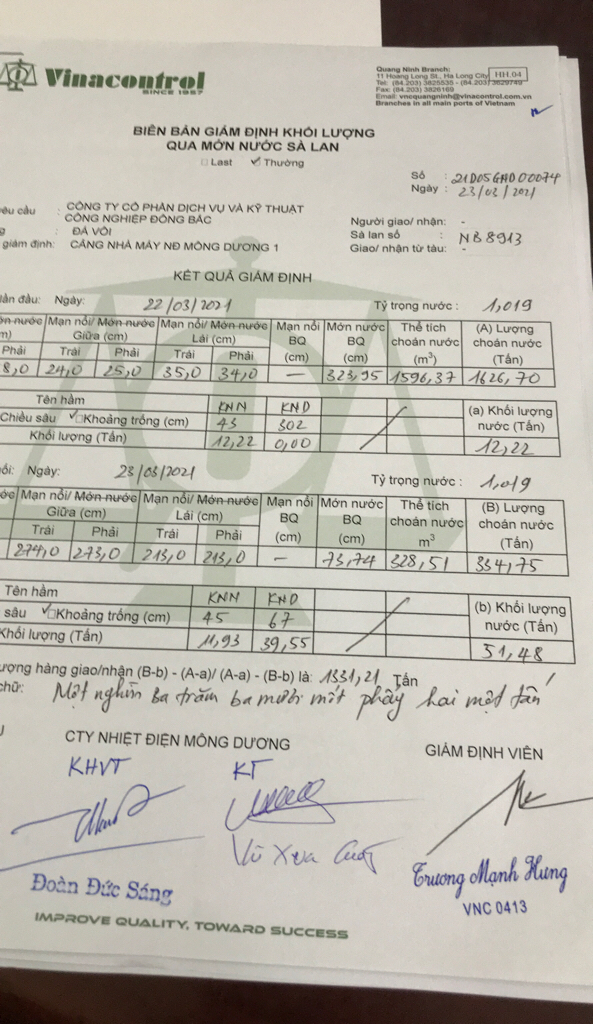 Vinacontrol
SINCE 1957
Quang Ninh Branch:
11 Hoang Long St., Ha Long City HH.04
Tel: (84.203) 3825535 - (84.203) 3629749
Fax: (84.203) 3826169
Email: vncquangninh@vinacontrol.com.vn
Branches in all main ports of Vietnam
BIÊN BẢN GIÁM ĐỊNH KHỐI LƯỢNG
QUA MỚN NƯỚC SÀ LAN
Last Thường
Số : 21D05GHD00074
Ngày : 23/03/2021
yêu cầu : CÔNG TY CỔ PHẦN DỊCH VỤ VÀ KỸ THUẬT
CÔNG NGHIỆP ĐÔNG BẮC
g : ĐÁ VÔI
giám định: CẢNG NHÀ MÁY NĐ MÔNG DƯƠNG 1
Người giao/ nhận: -
Sà lan số : NB8913
Giao/ nhận từ tàu: -
KẾT QUẢ GIÁM ĐỊNH
lần đầu: Ngày: 22/03/2021 Tỷ trọng nước : 1,019
ớn nước Mạn nổi/ Mớn nước Mạn nổi/ Mớn nước Mạn nổi Mớn nước Thể tích (A) Lượng
m) Giữa (cm) Lái (cm) BQ BQ choán nước choán nước
Phải Trái Phải Trái Phải (cm) (cm) (m³) (Tấn)
8,0 24,0 25,0 35,0 34,0 — 323,95 1596,37 1626,70
Tên hầm KNN KND (a) Khối lượng
Chiều sâu Khoảng trống (cm) 43 302 nước (Tấn)
Khối lượng (Tấn) 12,22 0,00 12,22
ối: Ngày: 23/03/2021 Tỷ trọng nước : 1,019
ước Mạn nổi/ Mớn nước Mạn nổi/ Mớn nước Mạn nổi Mớn nước Thể tích (B) Lượng
Giữa (cm) Lái (cm) BQ BQ choán nước choán nước
Trái Phải Trái Phải (cm) (cm) m³ (Tấn)
274,0 273,0 213,0 213,0 — 73,74 328,51 334,75
Tên hầm KNN KND (b) Khối lượng
sâu Khoảng trống (cm) 45 67 nước (Tấn)
Khối lượng (Tấn) 11,93 39,55 51,48
ượng hàng giao/nhận (B-b) - (A-a)/ (A-a) - (B-b) là: 1331,21 Tấn
chữ: Một nghìn ba trăm ba mươi mốt phẩy hai một tấn
CTY NHIỆT ĐIỆN MÔNG DƯƠNG GIÁM ĐỊNH VIÊN
KHVT KT
Vũ Xuân
Đoàn Đức Sáng
Trương Mạnh Hưng
VNC 0413
IMPROVE QUALITY, TOWARD SUCCESS